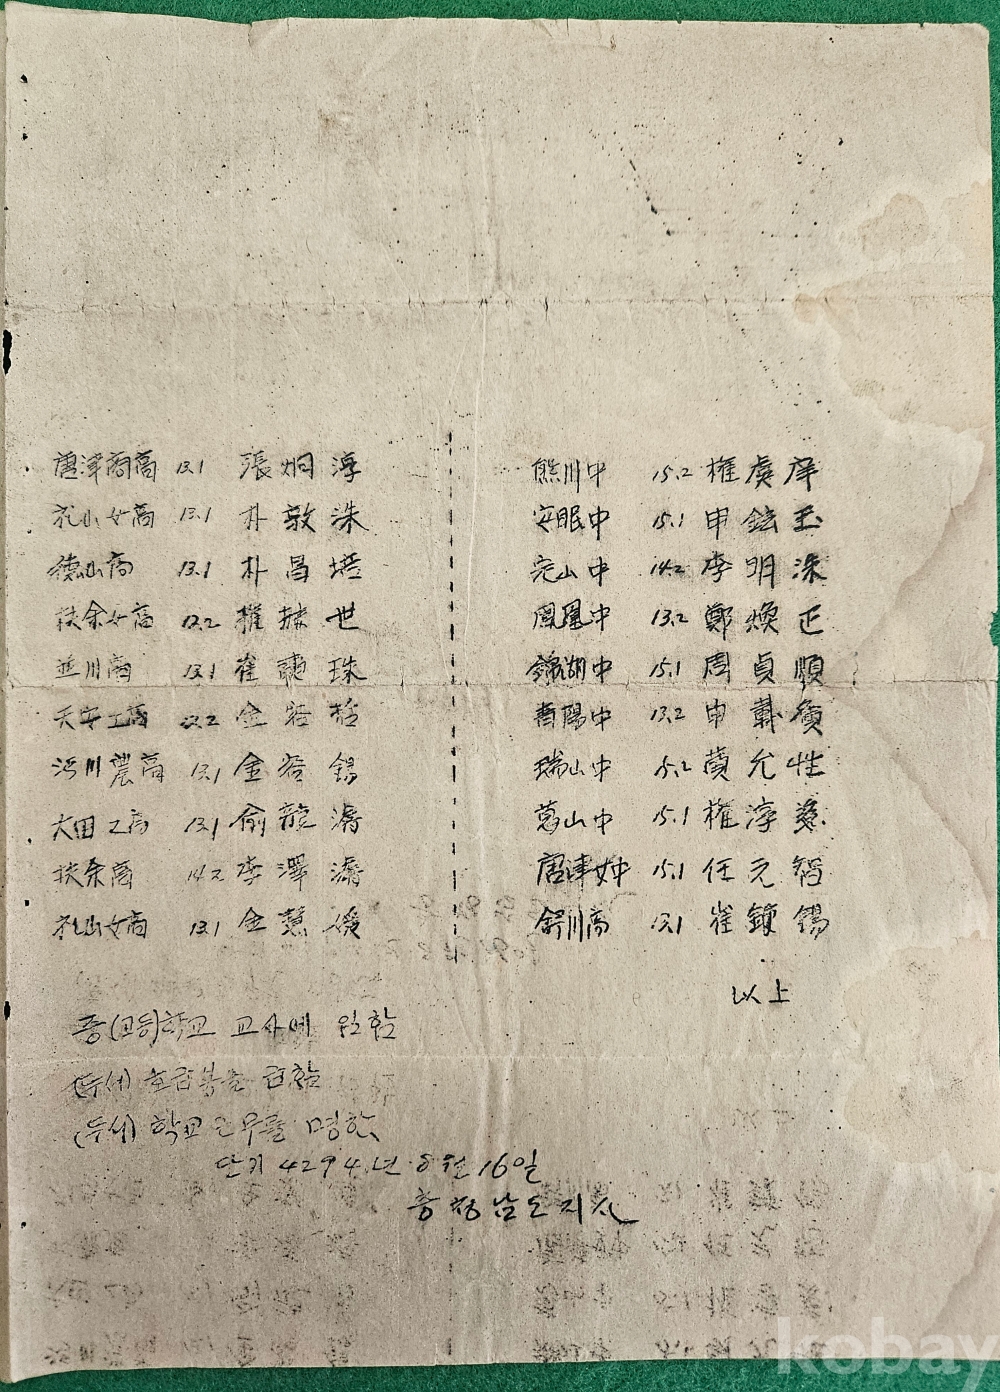 唐津商高 13.1 張炯淳
礼山女高 13.1 朴敦洙
德山高 13.1 朴昌
扶余女高 13.2 權 世
並川高 13.1 崔 珠
天安工高 金
농 農高 13.1 金 錫
大田工高 13.1 俞龍濬
扶余高 14.2 李澤濬
礼山女高 13.1 金慧媛
熊川中 15.2 權虔
安眠中 15.1 申鉉玉
14.2 李明洙
鳳凰中 13.2 鄭煥正
錦湖中 15.1 周貞順
靑陽中 13.2 申
瑞山中 15.2 黃允性
葛山中 15.1 權淳
唐津女中 15.1 任元
舒川高 13.1 崔鎭錫
以上
중(고등)학교 교사에 임함
호급봉을 급함
학교 근무를 명함
단기 4294년 8월 16일
충청남도지사
kobay